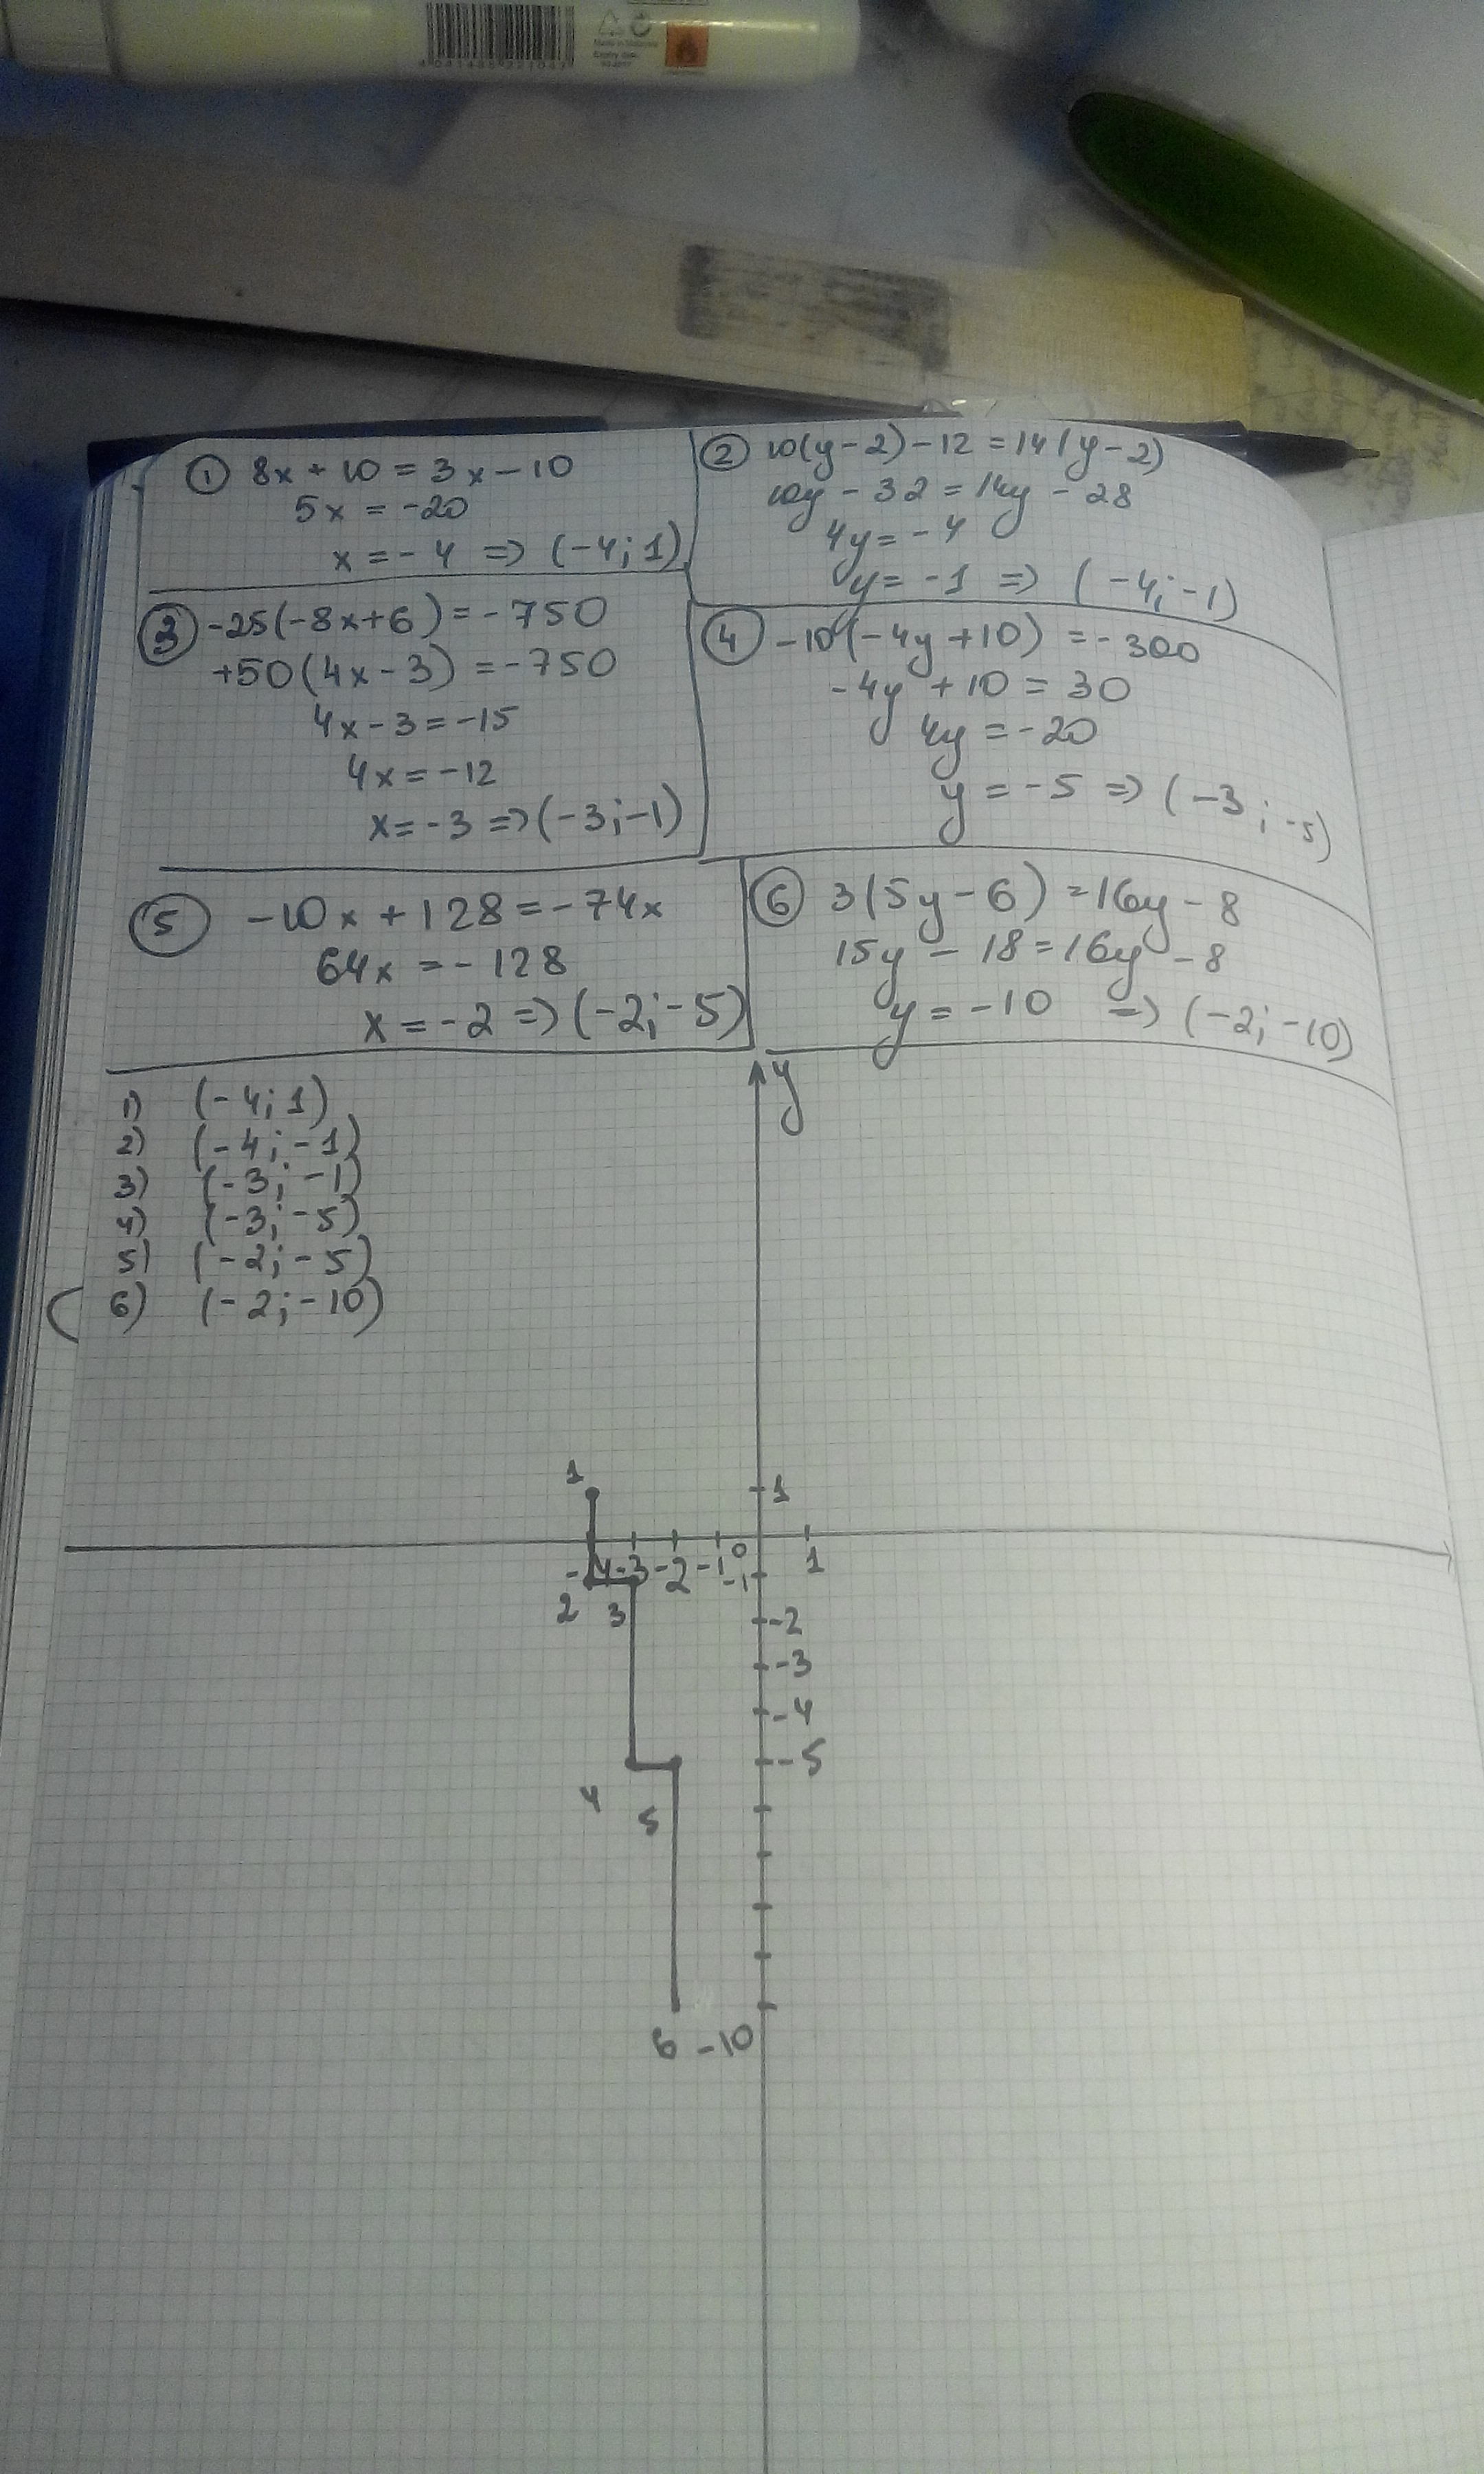 ① 8x + 10 = 3x - 10
5x = -20
x = -4 => (-4; 1)
② 10(y-2) - 12 = 14(y-2)
10y - 32 = 14y - 28
4y = -4
y = -1 => (-4; -1)
③ -25(-8x+6) = -750
+50(4x-3) = -750
4x - 3 = -15
4x = -12
x = -3 => (-3; -1)
④ -10(-4y+10) = -300
-4y + 10 = 30
4y = -20
y = -5 => (-3; -5)
⑤ -10x + 128 = -74x
64x = -128
x = -2 => (-2; -5)
⑥ 3(5y-6) = 16y - 8
15y - 18 = 16y - 8
y = -10 => (-2; -10)
1) (-4; 1)
2) (-4; -1)
3) (-3; -1)
4) (-3; -5)
5) (-2; -5)
6) (-2; -10)
y
1
1
-4 -3 -2 -1 0 1
-1
2 3
-2
-3
-4
-5
4
5
6 -10